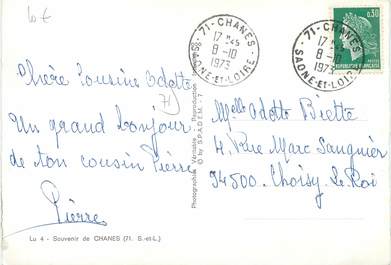 10 €
71 - CHANES
17 H 45
8 -10
1973
SAONE-ET-LOIRE
71 - CHANES
17 H 45
8 -10
1973
SAONE-ET-LOIRE
0,30
REPUBLIQUE FRANÇAISE
POSTES
Chère Cousine Odette
(71)
Un grand bonjour
de ton cousin Pierre
Pierre
Melle Odette Biette
4. Rue Marc Sangnier
94500. Choisy le Roi
Photographie Véritable - Reproduction
© by S.P.A.D.E.M. - 7
Lu 4 - Souvenir de CHANES (71. S.-et-L.)